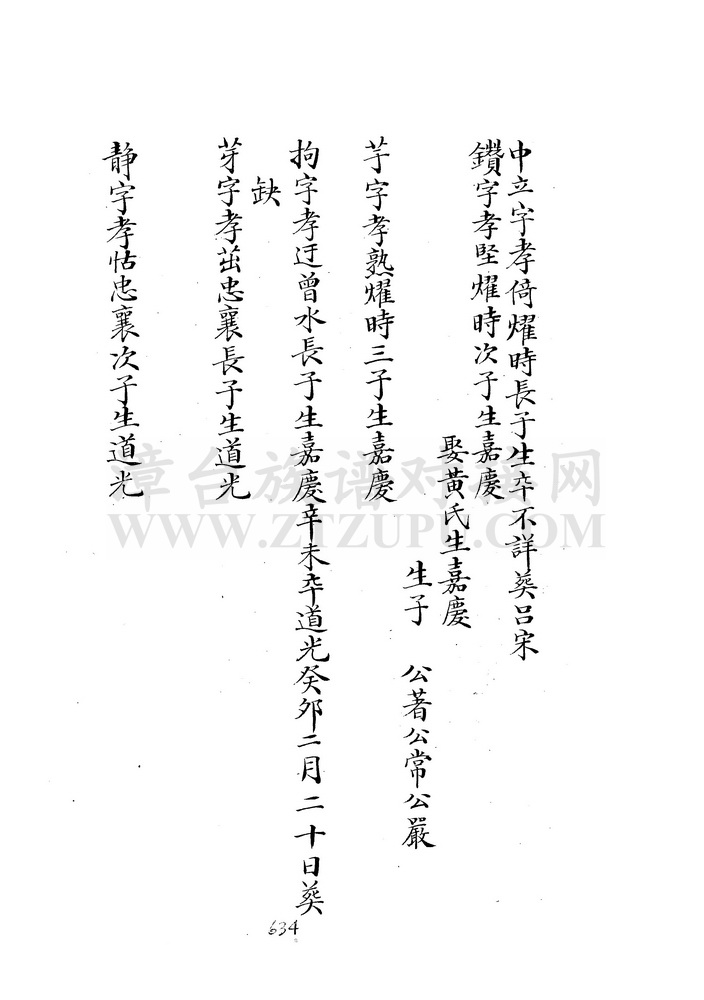 中立字孝倚燿時長子生卒不詳葬吕宋
鑽字孝堅燿時次子生嘉慶
娶黃氏生嘉慶
生子 公著公常公嚴
芋字孝熟燿時三子生嘉慶
拘字孝迂曾水長子生嘉慶辛未卒道光癸卯二月二十日葬
缺
芽字孝茁忠襄長子生道光
静字孝怙忠襄次子生道光
634
漳台族谱对接网
WWW.ZTZUPU.COM